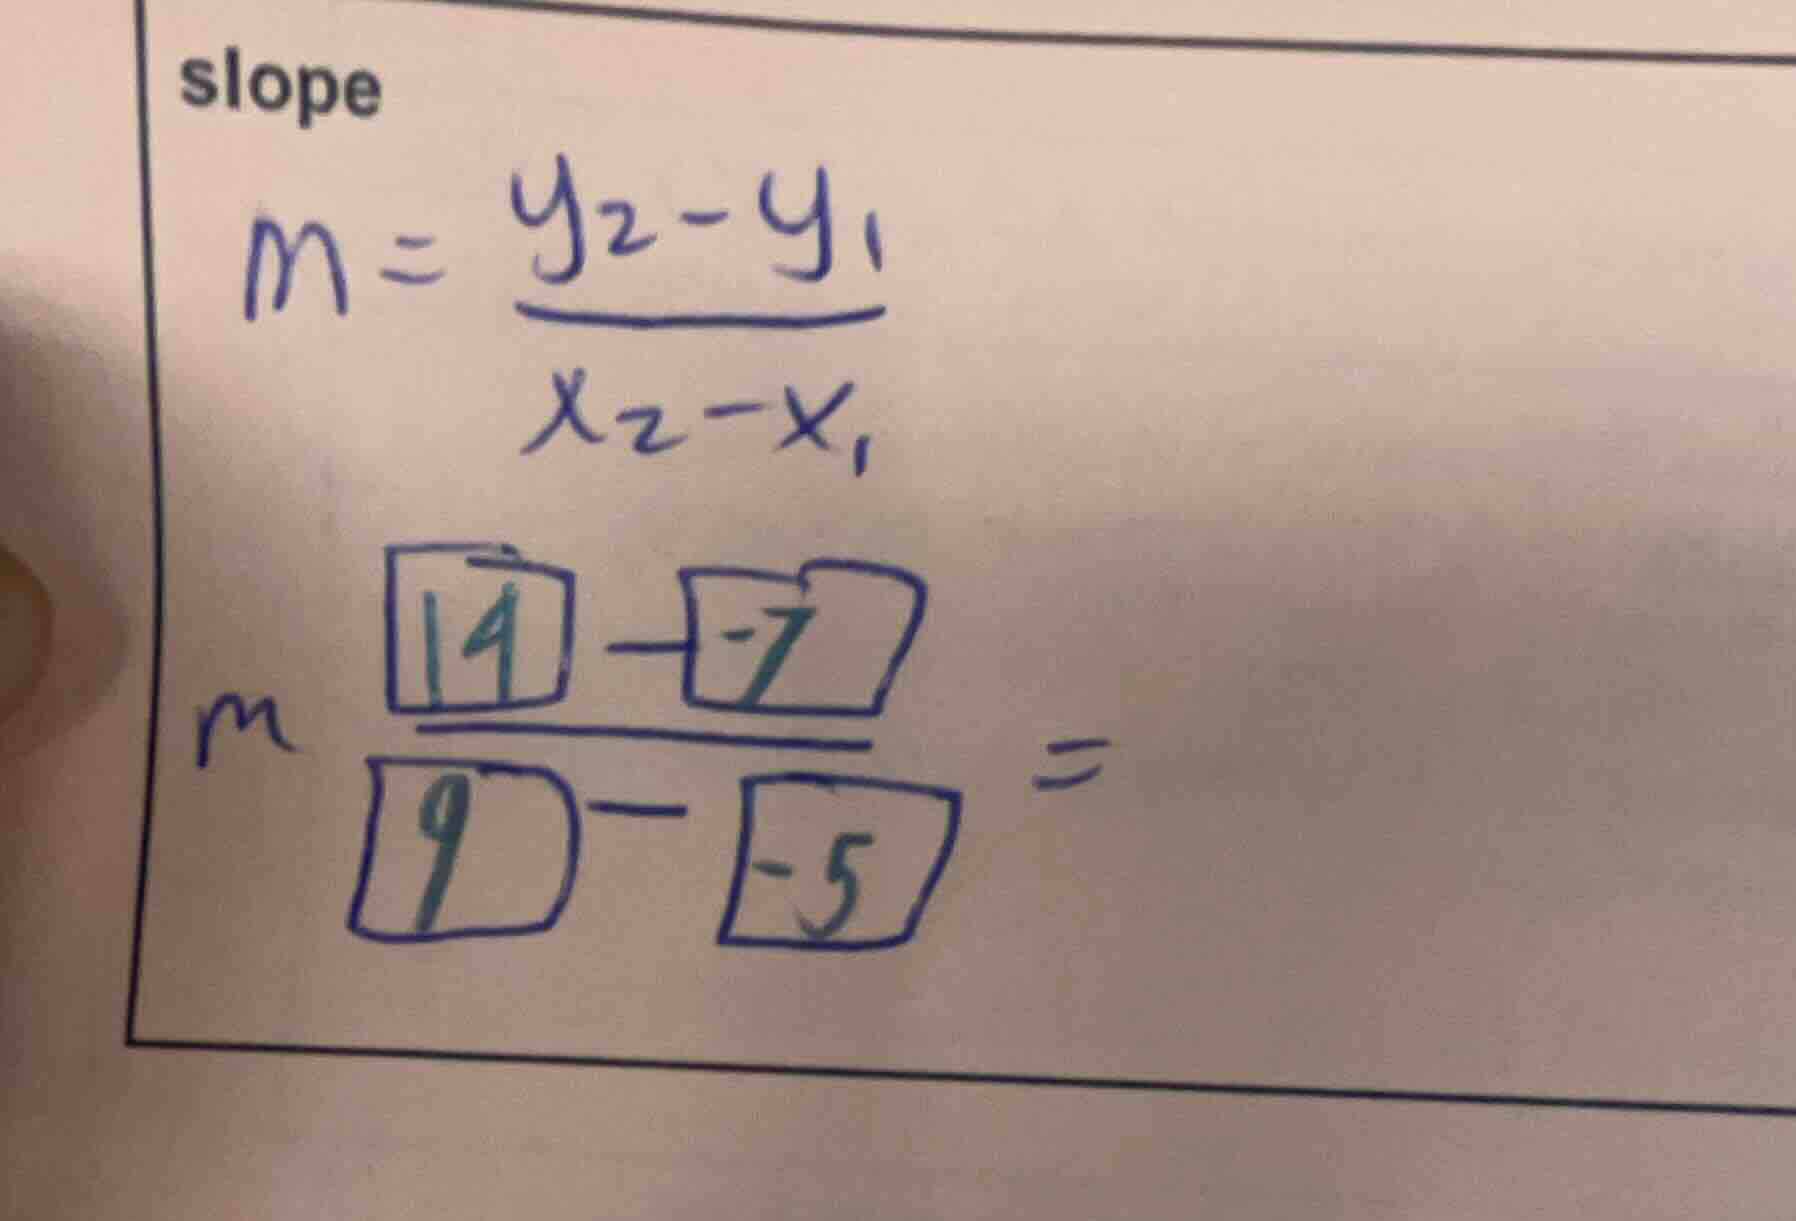 slope
m = y₂ - y₁
x₂ - x₁
14 - -7
m =
9 - -5